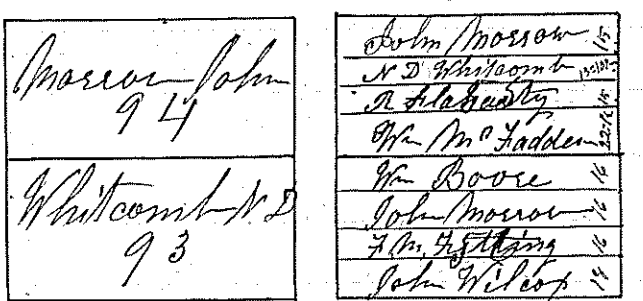 Morrow John
94
Whitcomb N D
93
John Morrow 15
N D Whitcomb
R Flahaety 15
Wm McFadden
Wm Boore 16
John Morrow 16
F M, 16
John Wilcox 14